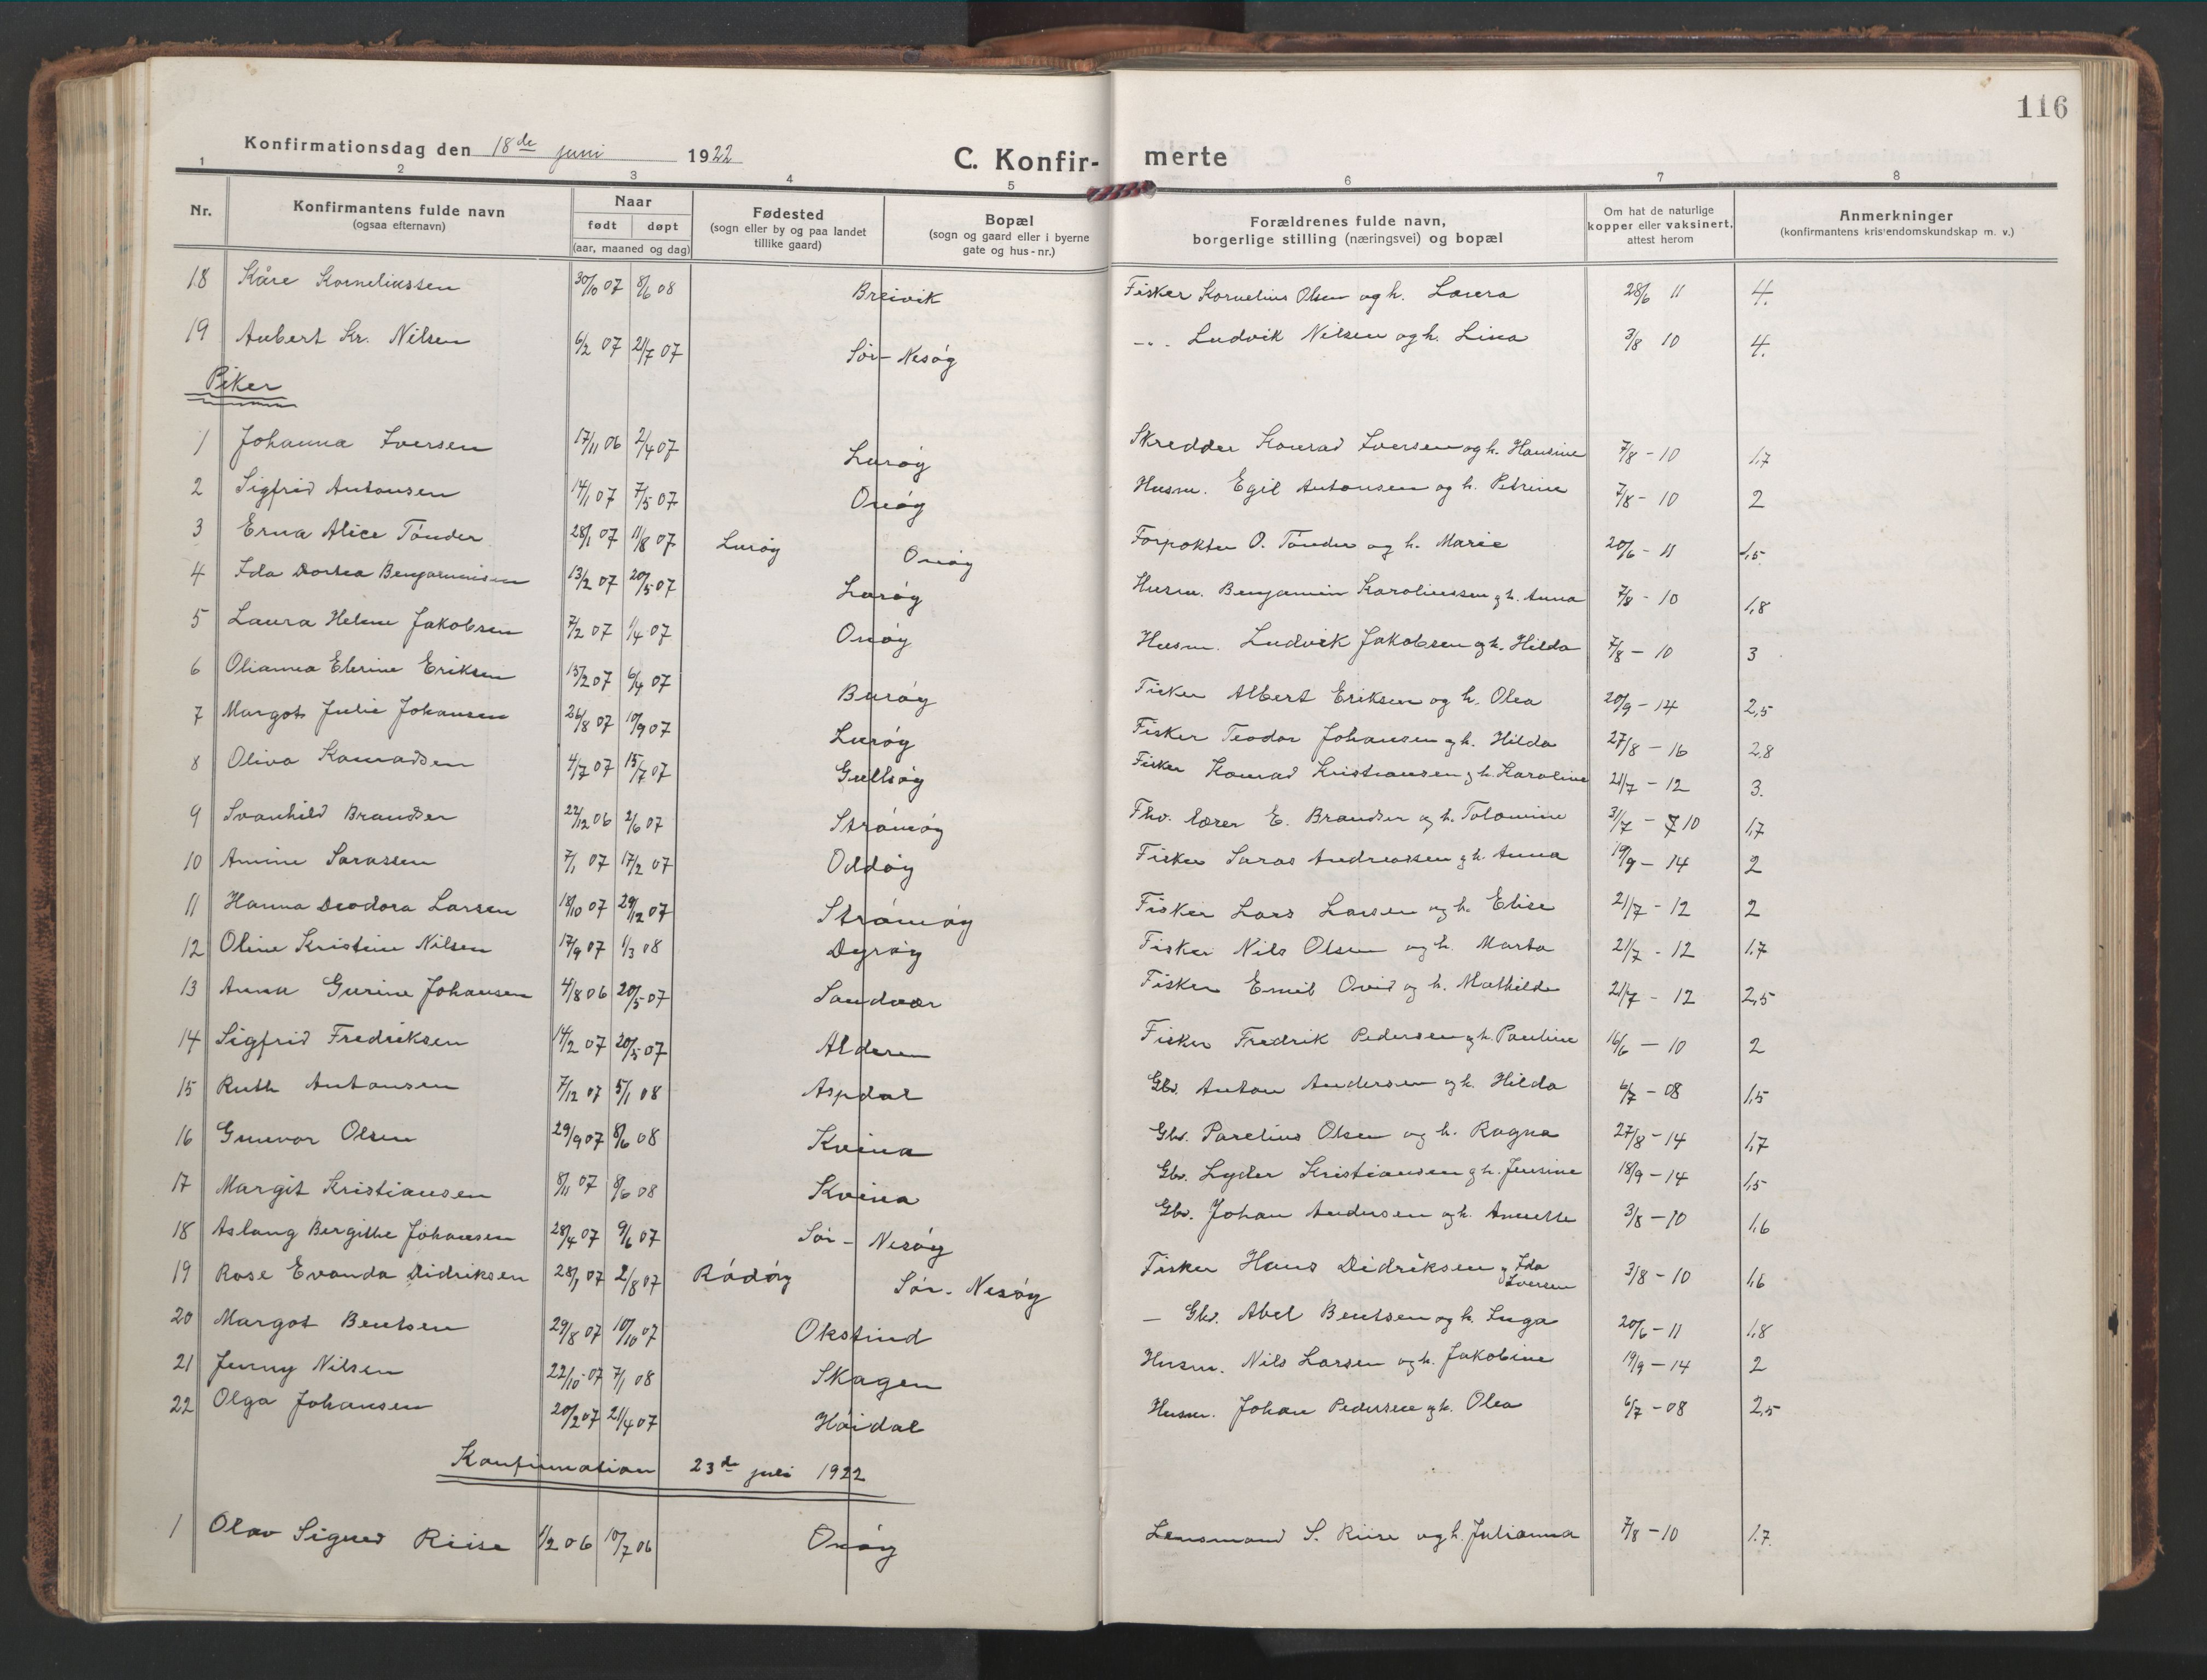 116
Konfirmationsdag den 18de juni 1922
C. Konfir- merte
1 2 3 4 5 6 7 8
Nr.
Konfirmantens fulde navn
(ogsaa efternavn)
Naar
født døpt
(aar, maaned og dag)
Fødested
(sogn eller by og paa landet
tillike gaard)
Bopæl
(sogn og gaard eller i byerne
gate og hus-nr.)
Forældrenes fulde navn,
borgerlige stilling (næringsvei) og bopæl
Om hat de naturlige
kopper eller vaksinert,
attest herom
Anmerkninger
(konfirmantens kristendomskundskap m. v.)
18 Kåre Korneliussen 30/10 07 8/6 08 Breivik Fisker Kornelius Olsen og h. Laura 28/6 11 4.
19 Aubert Kr. Nilsen 6/2 07 21/7 07 Sør-Nesøy -"- Ludvik Nilsen og h. Lina 3/8 10 4.
Piker
1 Johanna Iversen 17/11 06 2/4 07 Lurøy Skredder Konrad Iversen og h. Hansine 7/8 - 10 1,7
2 Sigfrid Antonsen 14/1 07 7/5 07 Onøy Husm. Egil Antonsen og h. Petrine 7/8 - 10 2
3 Erna Alice Tønder 28/1 07 11/8 07 Lurøy Onøy Forpakter O. Tønder og h. Marie 20/6 - 11 1,5
4 Ida Dortea Benjaminsen 13/2 07 20/5 07 Lurøy Husm. Benjamin Karoliussen og h. Anna 7/8 - 10 1,8
5 Laura Helene Jakobsen 7/2 07 1/4 07 Onøy Husm. Ludvik Jakobsen og h. Hilda 7/8 - 10 3
6 Olianna Elerine Eriksen 15/2 07 6/4 07 Burøy Fisker Albert Eriksen og h. Olea 20/9 - 14 2,5
7 Margot Julie Johansen 26/8 07 10/9 07 Lurøy Fisker Teodor Johansen og h. Hilda 27/8 - 16 2,8
8 Oliva Konradsen 4/7 07 15/7 07 Gullsøy Fisker Konrad Kristiansen og h. Karoline 21/7 - 12 3.
9 Svanhild Brandser 22/12 06 2/6 07 Strømøy Fhv. lærer E. Brandser og h. Tolomine 31/7 - 10 1,7
10 Amine Sarassen 7/1 07 17/2 07 Oddøy Fisker Saras Andreassen og h. Anna 19/9 - 14 2
11 Hanna Deodora Larsen 18/10 07 29/12 07 Strømøy Fisker Lars Larsen og h. Elise 21/7 - 12 2
12 Oline Kristine Nilsen 17/9 07 1/3 08 Dyrøy Fisker Nils Olsen og h. Marta 21/7 - 12 1,7
13 Anna Gurine Johansen 4/8 06 20/5 07 Sandvær Fisker Emil Ovid og h. Mathilde 21/7 - 12 2,5
14 Sigfrid Fredriksen 14/2 07 20/5 07 Alderen Fisker Fredrik Pedersen og h. Pauline 16/6 - 10 2
15 Ruth Antonsen 7/12 07 5/1 08 Aspdal Gbr. Anton Andersen og h. Hilda 6/7 - 08 1,5
16 Gunvor Olsen 29/9 07 8/6 08 Kvina Gbr. Parelius Olsen og h. Ragna 27/8 - 14 1,7
17 Margit Kristiansen 8/11 07 8/6 08 Kvina Gbr. Lyder Kristiansen og h. Jensine 18/9 - 14 1,5
18 Aslaug Bergithe Johansen 28/4 07 9/6 07 Sør-Nesøy Gbr. Johan Andersen og h. Annette 3/8 - 10 1,6
19 Rose Evanda Didriksen 28/1 07 2/8 07 Rødøy Sør-Nesøy Fisker Hans Didriksen og Ida Iversen 3/8 - 10 1,6
20 Margot Bentsen 29/8 07 10/10 07 Okstind - Gbr. Abel Bentsen og h. Inga 20/6 - 11 1,8
21 Jenny Nilsen 22/10 07 7/1 08 Skagen Husm. Nils Larsen og h. Jakobine 19/9 - 14 2
22 Olga Johansen 20/2 07 21/4 07 Høidal Husm. Johan Pedersen og h. Olea 6/7 - 08 2,5
Konfirmation 23de juli 1922
1 Olav Sigurd Riise 1/2 06 10/7 06 Onøy Lensmand S. Riise og h. Julianna 7/8 - 10 1.7.